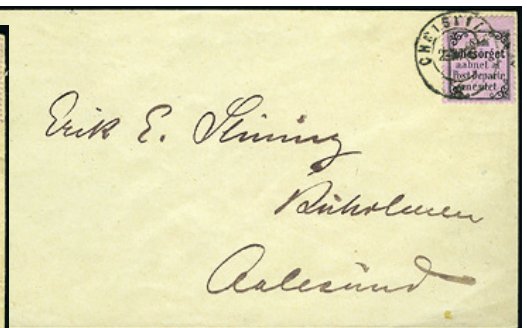 CHRISTI
Som
ubesørget
aabnet af
Post-Departe
mentet.
Erik E.
Buholmen
Aalesund